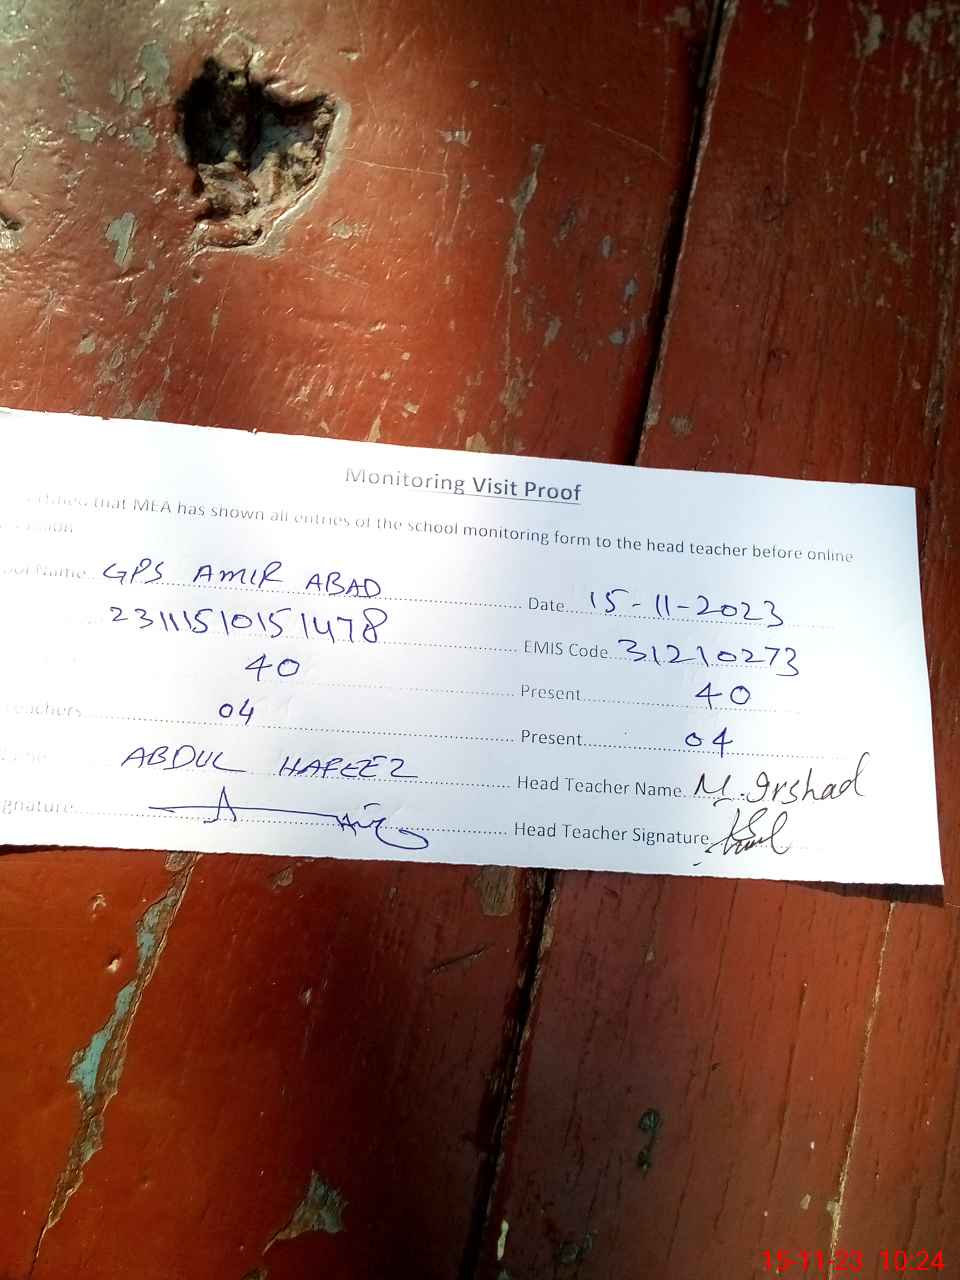 Monitoring Visit Proof
that MEA has shown all entries of the school monitoring form to the head teacher before online
Name GPS AMIR ABAD Date 15-11-2023
2311151015 1478 EMIS Code 31210273
40 Present 40
Teachers 04 Present 04
ABDUL HAFEEZ Head Teacher Name M. Irshad
Signature Head Teacher Signature
15-11-23 10:24